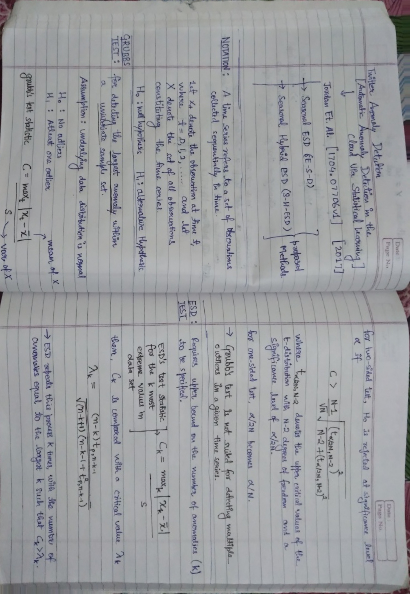 Twitter Anomaly Detection
[Automatic Anomaly Detection in the
Cloud Via Statistical Learning]
Jordan Et Al. [1704.07706v1] [2017]
→ Seasonal ESD (S-ESD)
→ Seasonal Hybrid ESD (S-H-ESD)
proposed
Methods
NOTATION: A time series refers to a set of observations
collected sequentially in time
Let xt denote the observation at time t,
where t = 0, 1, 2 and let
X denote the set of all observations
constituting the time series
H0: null hypothesis H1: alternative Hypothesis
GRUBBS
TEST:
For detecting the largest anomaly within
a univariate sample set
Assumption: underlying data distribution is normal
H0: No outliers
H1: Atleast one outlier
grubb's test statistic C = maxt |xt - x̄| / s
mean of X
var of X
Date:
Page No:
For two-sided test, H0 is rejected at significance level
α if
C > N-1 / √N √ (tα/2N, N-2)² / N-2 + (tα/2N, N-2)²
where tα/2N, N-2 denotes the upper critical values of the
t-distribution with N-2 degrees of freedom and a
significance level of α/2N.
For one-sided test, α/2N becomes α/N.
→ Grubb's test is not suited for detecting multiple
outliers in a given time series.
ESD
TEST:
Requires upper bound on the number of anomalies (k)
to be specified.
ESD's test statistic
for the k most
extreme values in
data set
Ck = maxk |xk - x̄| / s
then, Ck is compared with a critical value λk
λk = (n-k) tp, n-k-1 / √(n-k-1+t²p, n-k-1)(n-k+1)
→ ESD repeats this process k times, with the number of
anomalies equal to the largest k such that Ck > λk.